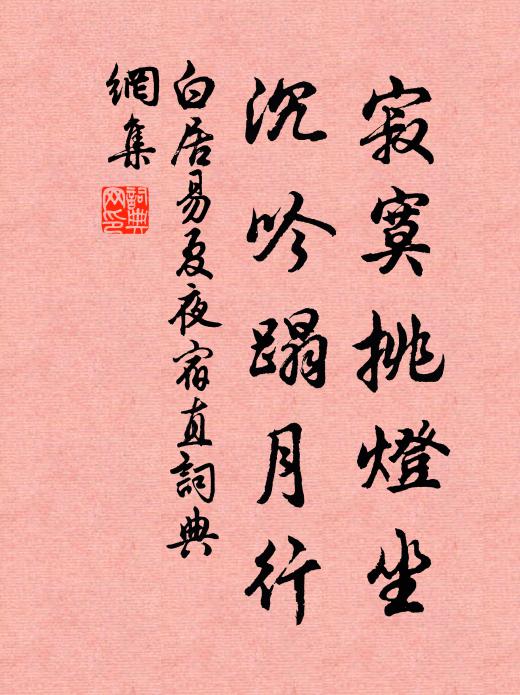 寂寞挑燈坐
沉吟蹋月行
白居易夏夜宿直詞典
網集
詞典
网印